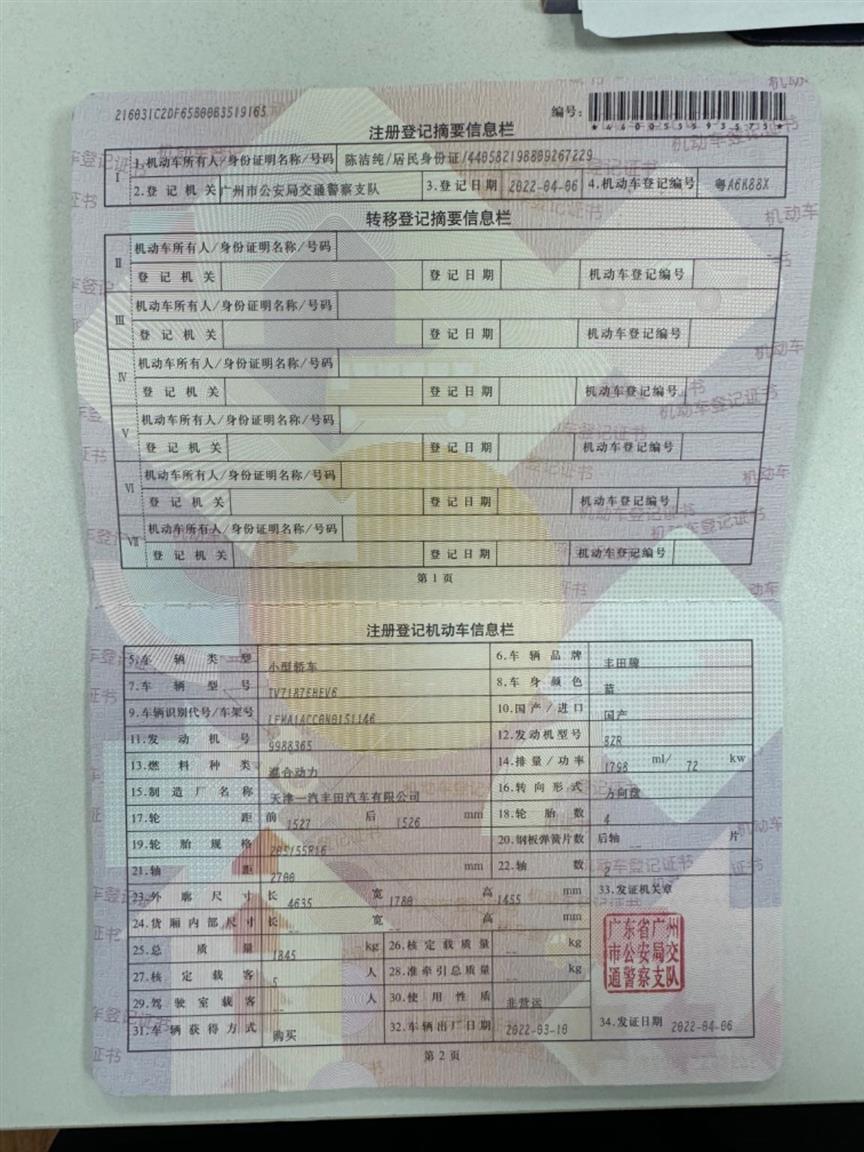 216031C2DF65B00B3519165
编号:
*440053593573*
注册登记摘要信息栏
I 1.机动车所有人/身份证明名称/号码 陈洁纯/居民身份证/440582198809267229
2.登记机关 广州市公安局交通警察支队 3.登记日期 2022-04-06 4.机动车登记编号 粤A6K88X
转移登记摘要信息栏
II 机动车所有人/身份证明名称/号码
登记机关 登记日期 机动车登记编号
III 机动车所有人/身份证明名称/号码
登记机关 登记日期 机动车登记编号
IV 机动车所有人/身份证明名称/号码
登记机关 登记日期 机动车登记编号
V 机动车所有人/身份证明名称/号码
登记机关 登记日期 机动车登记编号
VI 机动车所有人/身份证明名称/号码
登记机关 登记日期 机动车登记编号
VII 机动车所有人/身份证明名称/号码
登记机关 登记日期 机动车登记编号
第1页
注册登记机动车信息栏
5.车辆类型 小型轿车 6.车辆品牌 丰田牌
7.车辆型号 TV7187EHEV6 8.车身颜色 蓝
9.车辆识别代号/车架号 LFMA1ACC0N0151146 10.国产/进口 国产
11.发动机号 9988365 12.发动机型号 8ZR
13.燃料种类 混合动力 14.排量/功率 1798 ml/ 72 kw
15.制造厂名称 天津一汽丰田汽车有限公司 16.转向形式 方向盘
17.轮距 前 1527 后 1526 mm 18.轮胎数 4
19.轮胎规格 205/55R16 20.钢板弹簧片数 后轴 -- 片
21.轴距 2700 mm 22.轴数 2
23.外廓尺寸 长 4635 宽 1780 高 1455 mm 33.发证机关章
24.货厢内部尺寸 长 -- 宽 -- 高 -- mm
广东省广州
市公安局交
通警察支队
25.总质量 1845 kg 26.核定载质量 -- kg
27.核定载客 5 人 28.准牵引总质量 -- kg
29.驾驶室载客 -- 人 30.使用性质 非营运
31.车辆获得方式 购买 32.车辆出厂日期 2022-03-10 34.发证日期 2022-04-06
第2页